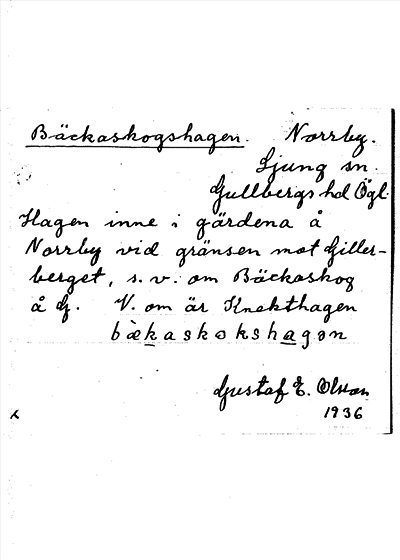 Bäckaskogshagen. Norrby.
Ljung sn.
Gullbergs hd Ögl.
Hagen inne i gärdena å
Norrby vid gränsen mot Giller-
berget, s.v. om Bäckaskog
å G. V. om är Knekthagen
bækaskokshagən
Gustaf E. Olson
1936